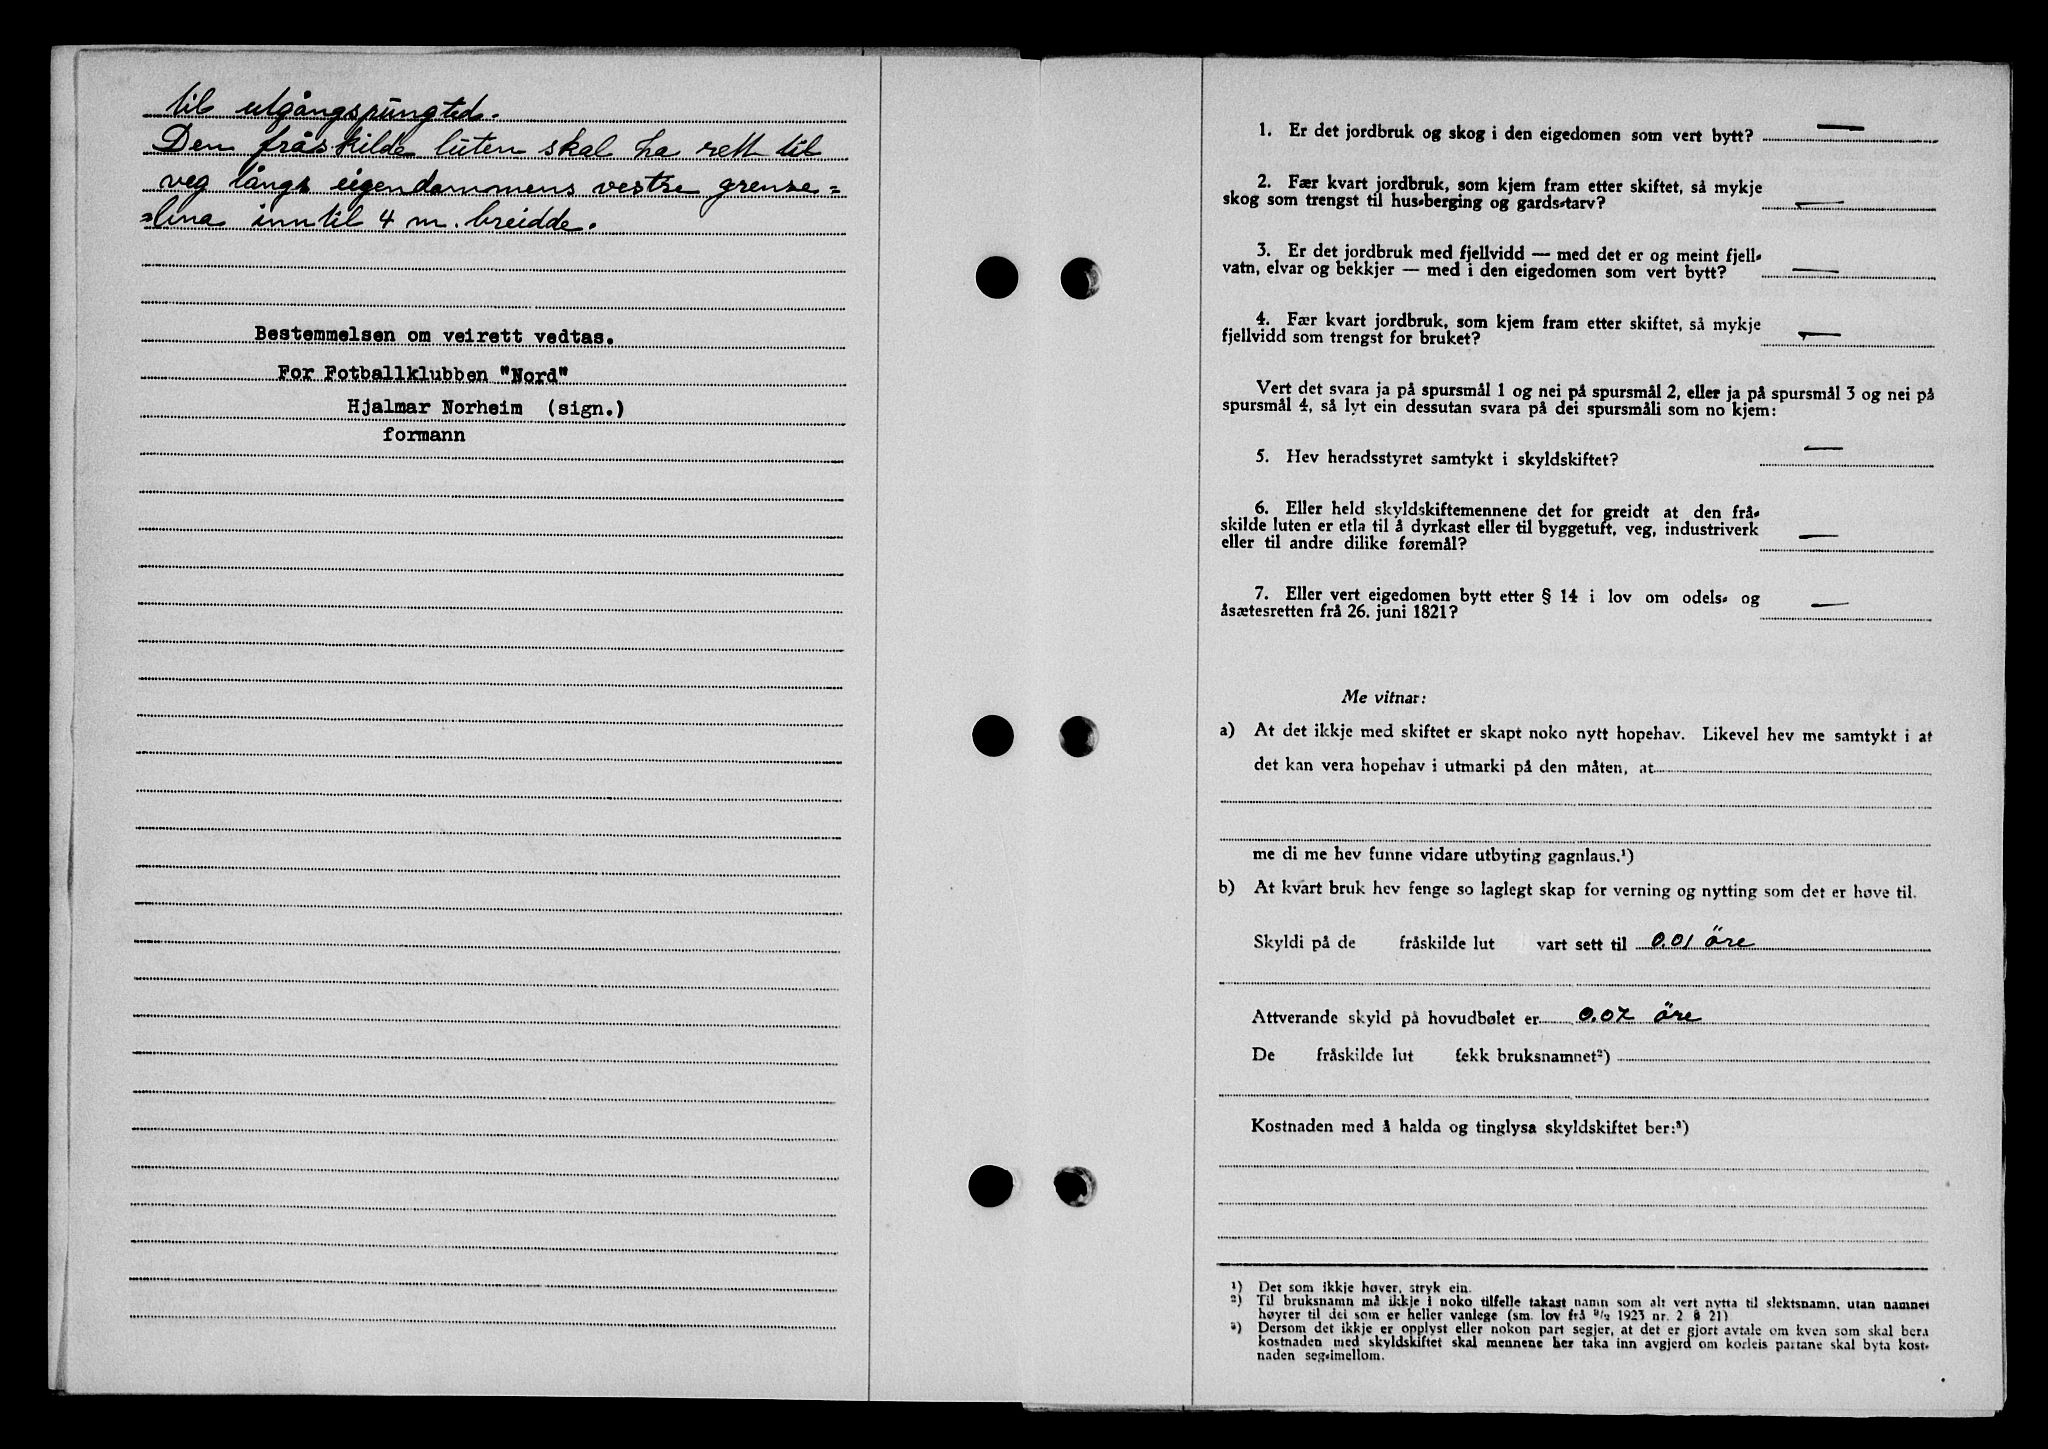 til utgångspungted.
Den fråskilde luten skal ha rett til
veg långs eigendommens vestre grense=
=lina inntil 4 m. breidde.
Bestemmelsen om veirett vedtas.
For Fotballklubben "Nord"
Hjalmar Norheim (sign.)
formann
1. Er det jordbruk og skog i den eigedomen som vert bytt? —
2. Fær kvart jordbruk, som kjem fram etter skiftet, så mykje
skog som trengst til hus-berging og gards-tarv? —
3. Er det jordbruk med fjellvidd — med det er og meint fjell-
vatn, elvar og bekkjer — med i den eigedomen som vert bytt? —
4. Fær kvart jordbruk, som kjem fram etter skiftet, så mykje
fjellvidd som trengst for bruket? —
Vert det svara ja på spursmål 1 og nei på spursmål 2, eller ja på spursmål 3 og nei på
spursmål 4, så lyt ein dessutan svara på dei spursmåli som no kjem:
5. Hev heradsstyret samtykt i skyldskiftet? —
6. Eller held skyldskiftemennene det for greidt at den frå-
skilde luten er etla til å dyrkast eller til byggetuft, veg, industriverk
eller til andre dilike føremål? —
7. Eller vert eigedomen bytt etter § 14 i lov om odels- og
åsætesretten frå 26. juni 1821? —
Me vitnar:
a) At det ikkje med skiftet er skapt noko nytt hopehav. Likevel hev me samtykt i at
det kan vera hopehav i utmarki på den måten, at
me di me hev funne vidare utbyting gagnlaus.¹)
b) At kvart bruk hev fenge so laglegt skap for verning og nytting som det er høve til.
Skyldi på de fråskilde lut vart sett til 0.01 öre
Attverande skyld på hovudbølet er 0.07 öre
De fråskilde lut fekk bruksnamnet²)
Kostnaden med å halda og tinglysa skyldskiftet ber:³)
¹) Det som ikkje høver, stryk ein.
²) Til bruksnamn må ikkje i noko tilfelle takast namn som alt vert nytta til slektsnamn, utan namnet
høyrer til dei som er heller vanlege (sm. lov frå ⁹/₂ 1923 nr. 2 § 21)
³) Dersom det ikkje er opplyst eller nokon part segjer, at det er gjort avtale om kven som skal bera
kostnaden med skyldskiftet skal mennene her taka inn avgjerd om korleis partane skal byta kost-
naden seg-imellom.